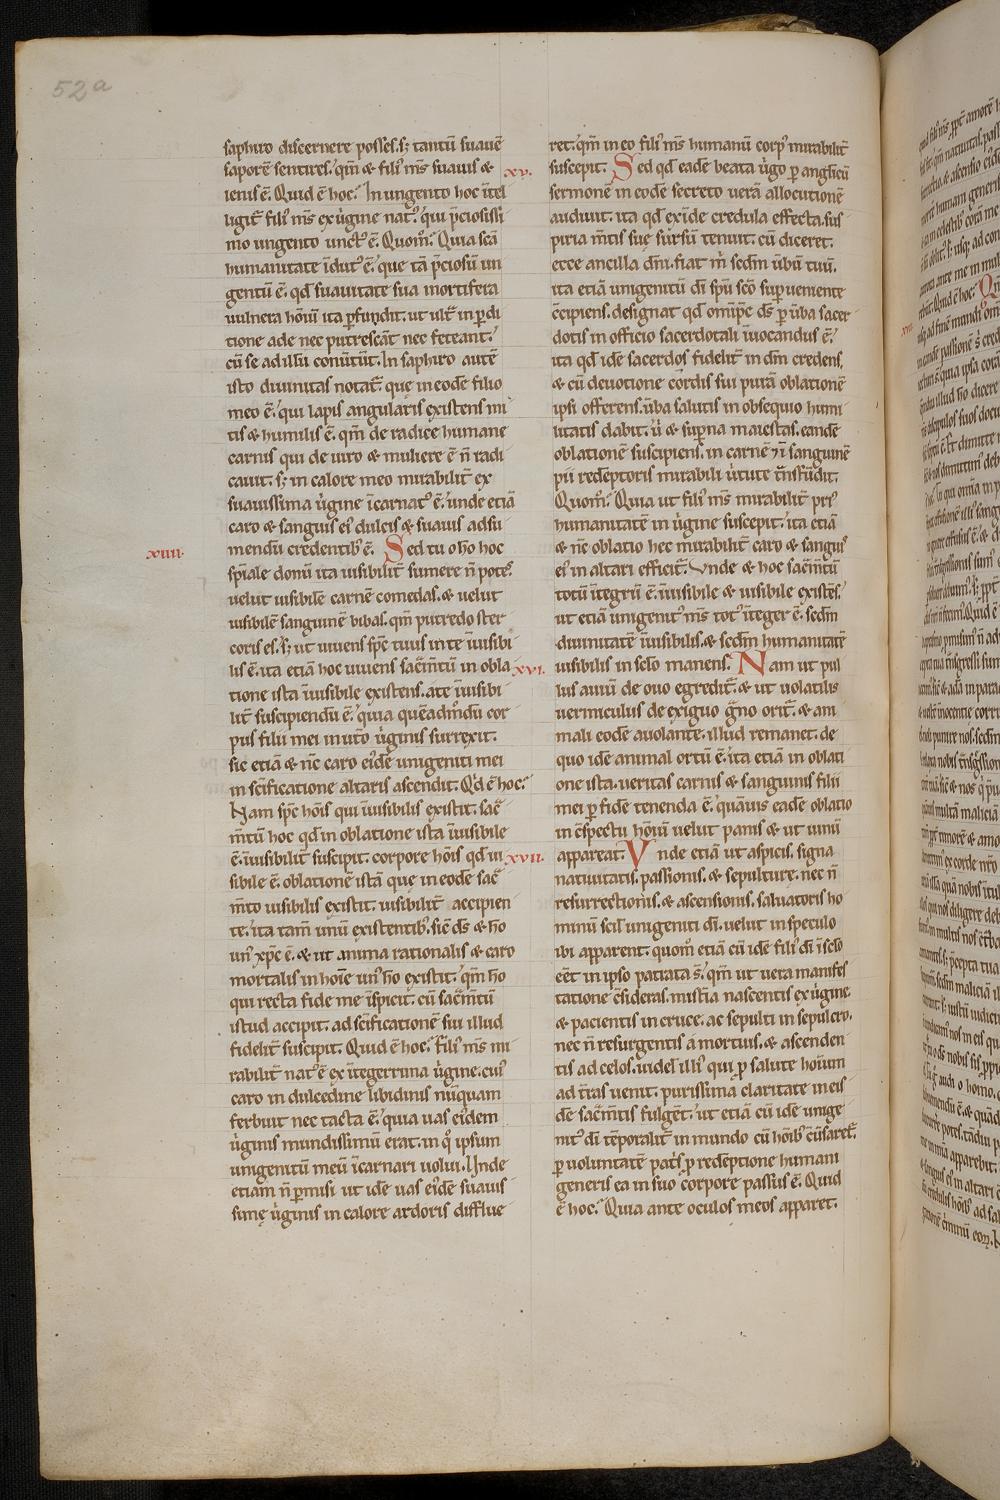 52a
saphiro discernere posses. s; tantū suauē
saporē sentires. qm̄ & fili᾿ m̄s suauis &
lenis ē. Quid ē hoc? In ungento hoc ītel
ligit᷑ fili᾿ m̄s ex u̓gine nat᾿. qui p̄ciosissi
mo ungento unct᾿ ē. Quom̊? Quia scā
humanitate īdut᾿ ē. que tā p̄ciosū un
gentū ē. qd̄ suauitate sua mortifera
uulnera hōiū ita ꝑfundit. ut ult᷑ in ꝑdi
tione ade nec putrescāt nec feteant.
cū se ad illū conu̓tūt. In saphiro autē
isto diuinitas notat᷑. que in eodē filio
meo ē. qui lapis angularis existens mi
tis & humilis ē. qm̄ de radice humane
carnis qui de uiro & muliere ē n̄ radi
cauit. s; in calore meo mirabilit᷑ ex
suauissima u̓gine īcarnat᾿ ē. unde etiā
caro & sanguis ei᾿ dulcis & suauis ad su
mendū credentib᾿ ē. Sed tu o hō hoc
xiiii.
sp̄iale donū ita uisibilit᷑ sumere n̄ potes.
uelut uisibilē carnē comedas. & uelut
uisibilē sanguinē bibas. qm̄ putredo ster
coris es. s; ut uiuens sp̄c tuus in te īuisibi
lis ē. ita etiā hoc uiuens sac̄m̄tū in obla
tione ista īuisibile existens. a te īuisibi
lit᷑ suscipiendū ē. quia quēadm̄dū cor
pus filii mei in utō u̓ginis surrexit.
sic etiā & nc̄ caro ei᾿dē unigeniti mei
in sc̄ificatione altaris ascendit. Qd̓ ē hoc?
Nam sp̄c hōis qui īuisibilis existit. sac̄
m̄tū hoc qd̄ in oblatione ista īuisibile
ē. īuisibilit᷑ suscipit. corpore hōis qd̄ ui
sibile ē. oblationē istā que in eodē sac̄
m̄to uisibilis existit. uisibilit᷑ accipien
te. ita tam̄ unū existentib᾿. sic̄ ds̄ & hō
un᾿ xp̄c ē. & ut anima rationalis & caro
mortalis in hoīe un᾿ hō existit. qm̄ hō
qui recta fide me īspicit. cū sac̄m̄tū
istud accipit. ad sc̄ificationē sui illud
fidelit᷑ suscipit. Quid ē hoc? Fili᾿ m̄s mi
rabilit᷑ nat᾿ ē ex ītegerrima u̓gine. cui᾿
caro in dulcedine libidinis nūquam
ferbuit nec tacta ē. quia uas ei᾿dem
u̓ginis mundissimū erat. in q̊ ipsum
unigenitū meū īcarnari uolui. Unde
etiam n̄ ꝑmisi ut idē uas ei᾿dē suauis
sime u̓ginis in calore ardoris difflue
ret. qm̄ in eo fili᾿ m̄s humanū corp᾿ mirabilit᷑
suscepit. Sed qd̄ eadē beata u̓go ꝑ anglicū
xv.
sermonē in eodē secreto uerā allocutionē
audiuit. ita qd̄ exīde credula effecta. sus
piria m̄tis sue sūrsū tenuit. cū diceret.
ecce ancilla dn̄i. fiat m̄ scd̄m u̓bū tuū.
ita etiā unigenitū dī sp̄u sc̄o supueniente
c̄cipiens. designat qd̄ omīpc̄ ds̄ ꝑ u̓ba sacer
dotis in officio sacerdotali īuocandus ē.
ita qd̄ idē sacerdos fidelit᷑ in dm̄ credens.
& cū deuotione cordis sui purā oblationē
ipsi offerens. u̓ba salutis in obsequio humi
litatis dabit. u̓ & suꝑna maiestas. eandē
oblationē suscipiens. in carnē ⁊ ī sanguinē
pii redēptoris mirabili u̓tute t̄nsfūdit.
Quom̊? Quia ut fili᾿ m̄s mirabilit᷑ pri᾿
humanitatē in u̓gine suscepit. ita etiā
& nc̄ oblatio hec mirabilit᷑ caro & sangui᾿
ei᾿ in altari efficit᷑. Vnde & hoc sac̄m̄tū
totū ītegrū ē. īuisibile & uisibile existēs.
ut etiā unigenit᾿ m̄s tot᾿ īteger ē. scd̄m
diuinitatē īuisibilis. & scd̄m humanitatē
uisibilis in sclo manens. Nam ut pul
xvi.
lus auiū de ouo egredit᷑. & ut uolatilis
uermiculus de exiguo g̓no orit᷑. & ani
mali eodē auolante. illud remanet. de
quo idē animal ortū ē. ita etiā in oblati
one ista. ueritas carnis & sanguinis filii
mei ꝑ fidē tenenda ē. quāuis eadē oblatio
in c̄spectu hōiū uelut panis & ut uinū
appareat. Vnde etiā ut aspicis. signa
xvii.
natiuitatis. passionis. & sepulture. nec n̄
resurrectionis. & ascensionis. saluatoris ho
minū scil᷑ unigeniti dī. uelut in speculo
ibi apparent. quom̊ etiā cū idē fili᾿ dī ī sclo
eēt in ipso patrata s̄. qm̄ ut uera manifes
tatione c̄sideras. mist̄ia nascentis ex u̓gine.
& pacientis in cruce. ac sepulti in sepulcro.
nec n̄ resurgentis a mortuis. & ascenden
tis ad celos. uidel᷑ illi᾿ qui ꝓ salute hoīum
ad t̄ras uenit. purissima claritate in eis
dē sac̄m̄tis fulgēt. ut etiā cū idē unige
nit᾿ dī tēporalit᷑ in mundo cū hōib᾿ c̄u̓saret᷑.
ꝑ uoluntatē pat᷑s ꝓ redēptione humani
generis ea in suo corpore passus ē. Quid
ē hoc? Quia ante oculos meos apparet.